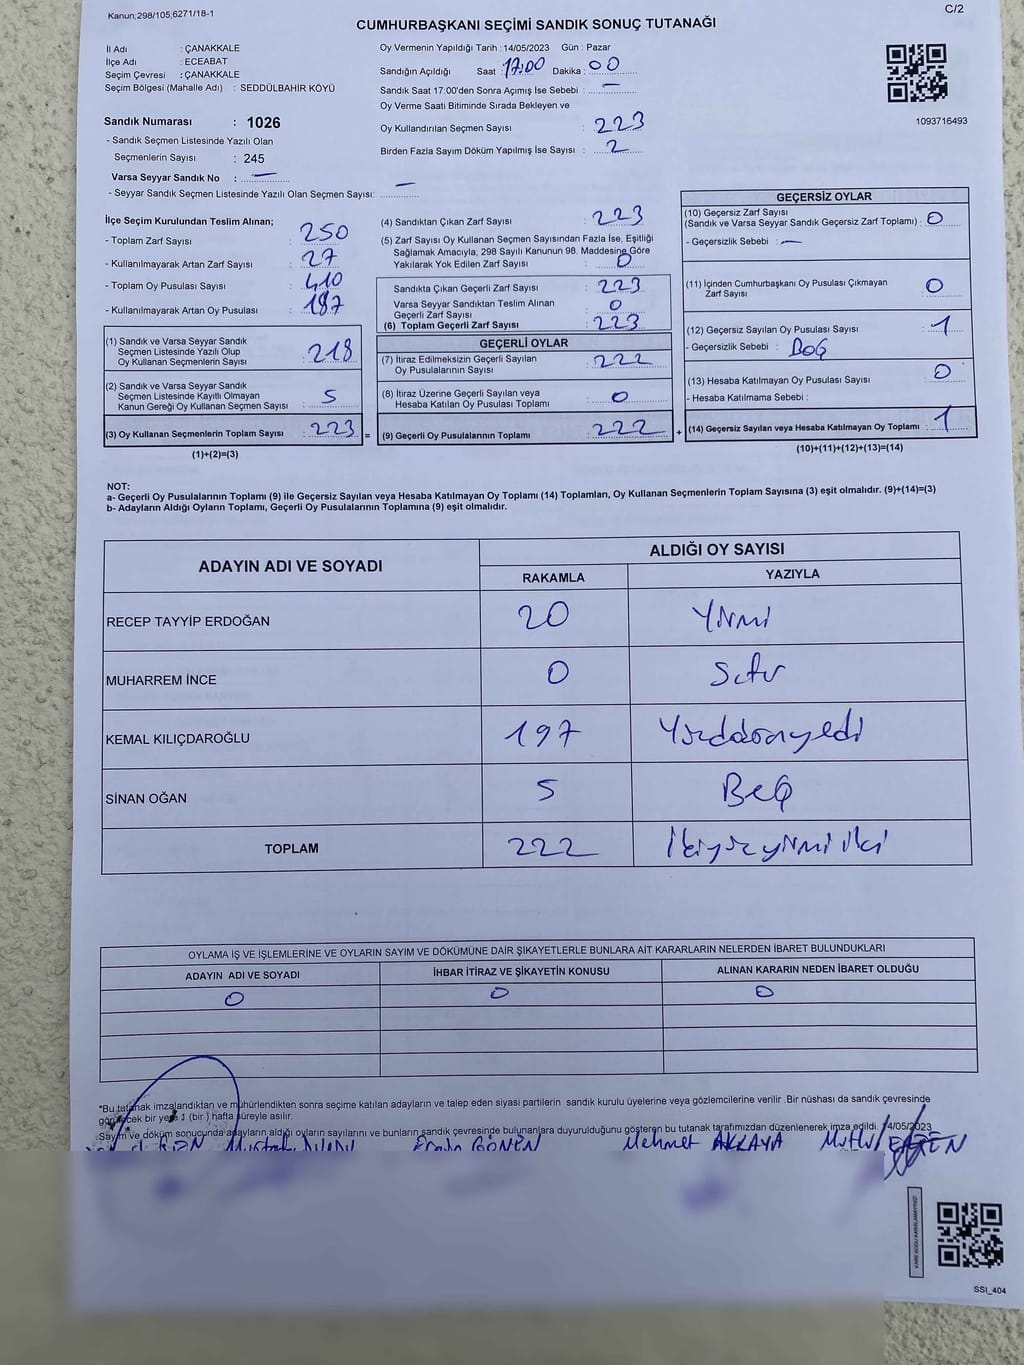 Kanun,298/105;6271/18-1
C/2
CUMHURBAŞKANI SEÇİMİ SANDIK SONUÇ TUTANAĞI
İl Adı : ÇANAKKALE
İlçe Adı : ECEABAT
Seçim Çevresi : ÇANAKKALE
Seçim Bölgesi (Mahalle Adı) : SEDDÜLBAHİR KÖYÜ
Sandık Numarası : 1026
- Sandık Seçmen Listesinde Yazılı Olan
Seçmenlerin Sayısı : 245
Varsa Seyyar Sandık No : —
- Seyyar Sandık Seçmen Listesinde Yazılı Olan Seçmen Sayısı: —
Oy Vermenin Yapıldığı Tarih : 14/05/2023 Gün : Pazar
Sandığın Açıldığı Saat : 17:00 Dakika : 00
Sandık Saat 17:00'den Sonra Açımış İse Sebebi : —
Oy Verme Saati Bitiminde Sırada Bekleyen ve
Oy Kullandırılan Seçmen Sayısı : 223
Birden Fazla Sayım Döküm Yapılmış İse Sayısı : 2
1093716493
İlçe Seçim Kurulundan Teslim Alınan;
- Toplam Zarf Sayısı : 250
- Kullanılmayarak Artan Zarf Sayısı : 27
- Toplam Oy Pusulası Sayısı : 410
- Kullanılmayarak Artan Oy Pusulası : 187
(1) Sandık ve Varsa Seyyar Sandık
Seçmen Listesinde Yazılı Olup
Oy Kullanan Seçmenlerin Sayısı : 218
(2) Sandık ve Varsa Seyyar Sandık
Seçmen Listesinde Kayıtlı Olmayan
Kanun Gereği Oy Kullanan Seçmen Sayısı : 5
(3) Oy Kullanan Seçmenlerin Toplam Sayısı : 223 =
(1)+(2)=(3)
(4) Sandıktan Çıkan Zarf Sayısı : 223
(5) Zarf Sayısı Oy Kullanan Seçmen Sayısından Fazla İse, Eşitliği
Sağlamak Amacıyla, 298 Sayılı Kanunun 98. Maddesine Göre
Yakılarak Yok Edilen Zarf Sayısı : 0
Sandıkta Çıkan Geçerli Zarf Sayısı : 223
Varsa Seyyar Sandıktan Teslim Alınan
Geçerli Zarf Sayısı : 0
(6) Toplam Geçerli Zarf Sayısı : 223
GEÇERLİ OYLAR
(7) İtiraz Edilmeksizin Geçerli Sayılan
Oy Pusulalarının Sayısı : 222
(8) İtiraz Üzerine Geçerli Sayılan veya
Hesaba Katılan Oy Pusulası Toplamı : 0
(9) Geçerli Oy Pusulalarının Toplamı : 222 +
GEÇERSİZ OYLAR
(10) Geçersiz Zarf Sayısı
(Sandık ve Varsa Seyyar Sandık Geçersiz Zarf Toplamı) : 0
- Geçersizlik Sebebi : —
(11) İçinden Cumhurbaşkanı Oy Pusulası Çıkmayan
Zarf Sayısı : 0
(12) Geçersiz Sayılan Oy Pusulası Sayısı : 1
- Geçersizlik Sebebi : BOŞ
(13) Hesaba Katılmayan Oy Pusulası Sayısı : 0
- Hesaba Katılmama Sebebi :
(14) Geçersiz Sayılan veya Hesaba Katılmayan Oy Toplamı : 1
(10)+(11)+(12)+(13)=(14)
NOT:
a- Geçerli Oy Pusulalarının Toplamı (9) ile Geçersiz Sayılan veya Hesaba Katılmayan Oy Toplamı (14) Toplamları, Oy Kullanan Seçmenlerin Toplam Sayısına (3) eşit olmalıdır. (9)+(14)=(3)
b- Adayların Aldığı Oyların Toplamı, Geçerli Oy Pusulalarının Toplamına (9) eşit olmalıdır.
ADAYIN ADI VE SOYADI ALDIĞI OY SAYISI
RAKAMLA YAZIYLA
RECEP TAYYİP ERDOĞAN 20 Yirmi
MUHARREM İNCE 0 Sıfır
KEMAL KILIÇDAROĞLU 197 Yüzdoksanyedi
SİNAN OĞAN 5 Beş
TOPLAM 222 İkiyüzyirmiiki
OYLAMA İŞ VE İŞLEMLERİNE VE OYLARIN SAYIM VE DÖKÜMÜNE DAİR ŞİKAYETLERLE BUNLARA AİT KARARLARIN NELERDEN İBARET BULUNDUKLARI
ADAYIN ADI VE SOYADI İHBAR İTİRAZ VE ŞİKAYETİN KONUSU ALINAN KARARIN NEDEN İBARET OLDUĞU
0 0 0
*Bu tutanak imzalandıktan ve mühürlendikten sonra seçime katılan adayların ve talep eden siyasi partilerin sandık kurulu üyelerine veya gözlemcilerine verilir .Bir nüshası da sandık çevresinde
görülecek bir yere 1 (bir ) hafta süreyle asılır.
Sayım ve döküm sonucunda adayların aldığı oyların sayıları ve bunların sandık çevresinde bulunanlara duyurulduğunu gösteren bu tutanak tarafımızdan düzenlenerek imza edildi. 14/05/2023
GÖNEN Mehmet AKKAYA Mutlu
KARE KODU KARALAMAYINIZ!
SSI_404